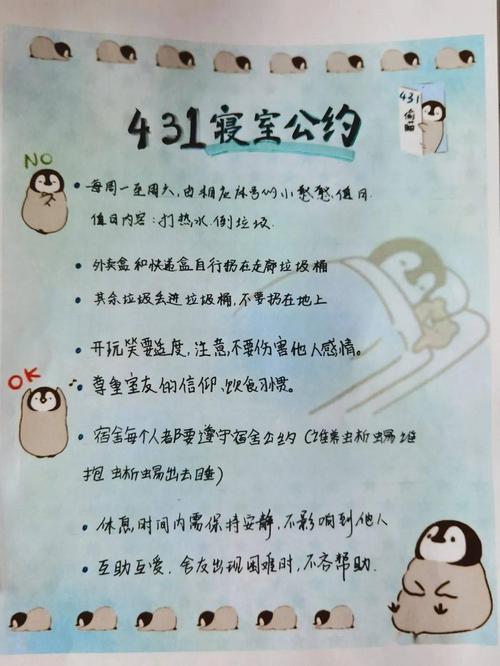 431寝室公约
431
偷瞄
NO
每周一至周六,由相应床号的小憨憨值日.
值日内容:打热水.倒垃圾.
外卖盒和快递盒自行扔在走廊垃圾桶
其余垃圾丢进垃圾桶,不要扔在地上
开玩笑要适度,注意,不要伤害他人感情。
OK
尊重室友的信仰、饮食习惯。
宿舍每个人都要遵守宿舍公约(谁养虫析虫易谁
抱 虫析虫易出去睡)
休息时间内需保持安静,不影响到他人
互助互爱.舍友出现困难时,不吝帮助.